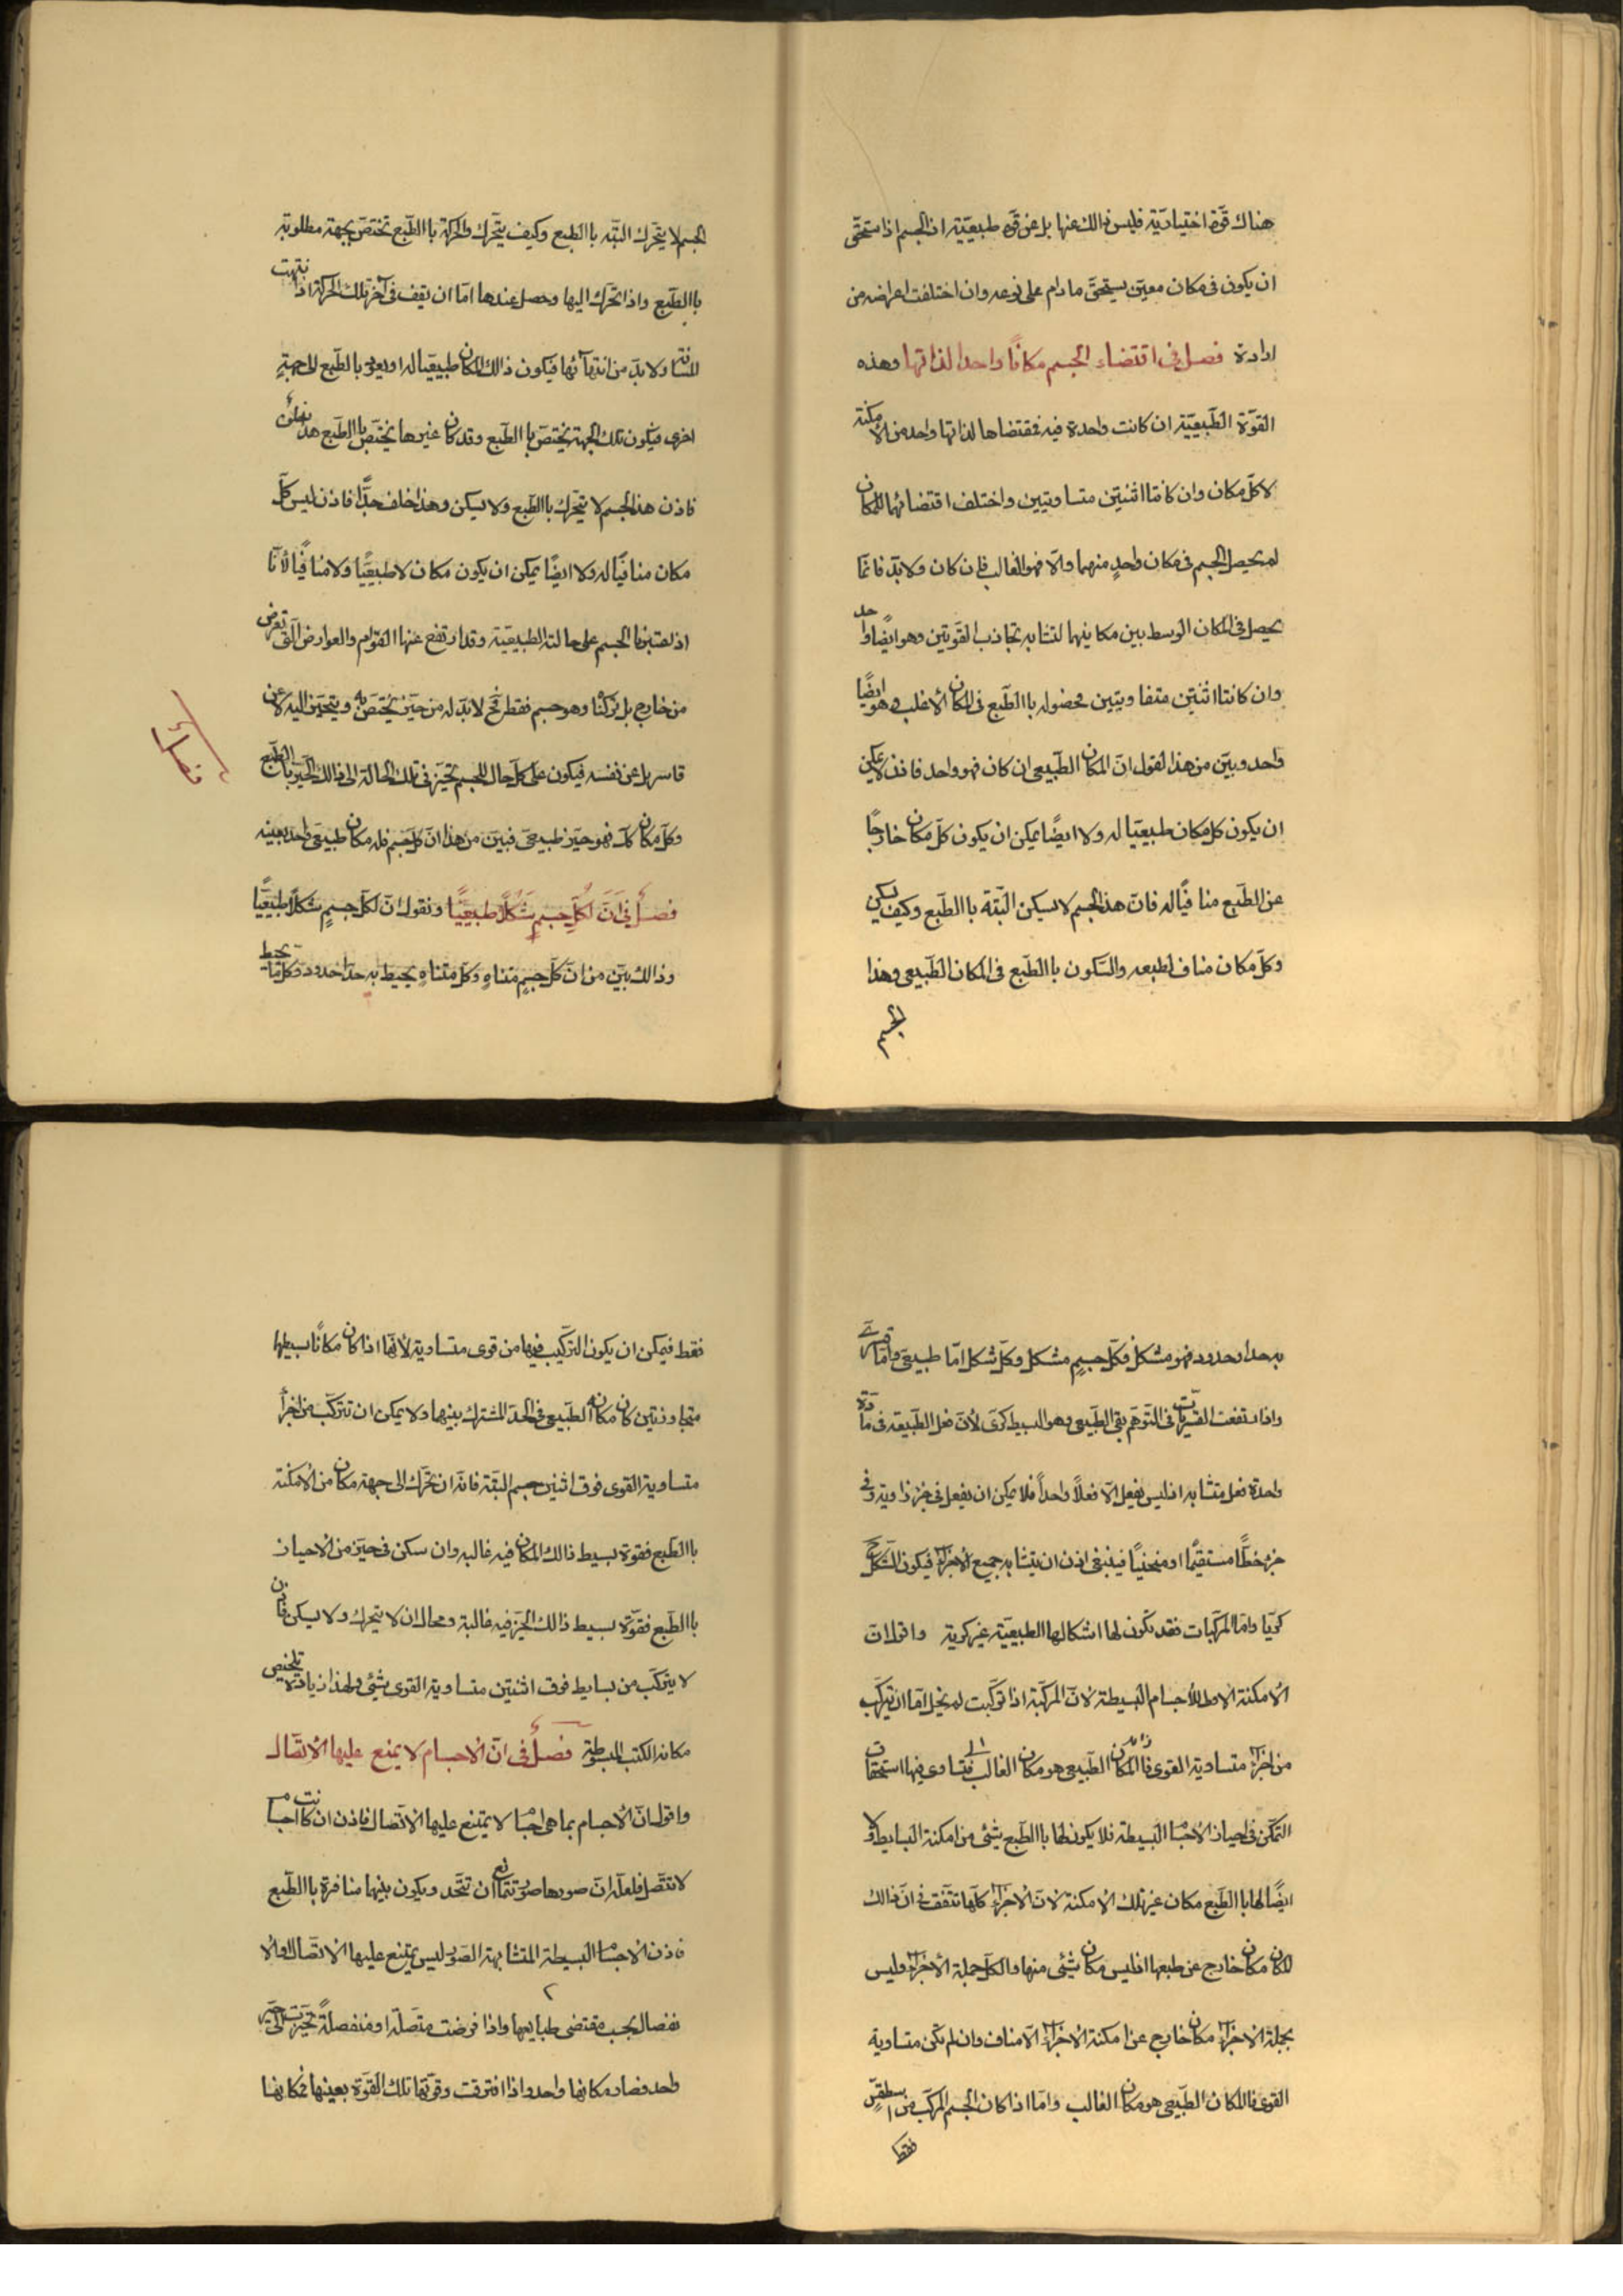 هناك قوة اختيارية فليس ذالك عنها بل عن قوة طبيعيّة ان الجسم اذا ستحقّ
ان يكون فى مكان معيّن يستحقّ ما دام على نوعه وان اختلفت اعراضه من
ارادة فصل فى اقتضاء الجسم مكانًا واحدا لذاتها وهذه
القوّة الطّبيعيّة ان كانت واحدة فيه فمقتضاها لذاتها واحد من الأمكنة
لا كلّ مكان وان كانتا اثنتين متساويتين واختلف اقتضائهما للمكان
لم يحصل الجسم فى مكان واحدٍ منهما والّا فهو الغالب فان كان ولا بدّ فانّما
يحصل فى المكان الوسط بين مكانيهما لتشابه تجاذب القوتين وهو ايضًا واحد
وان كانتا اثنتين متفاويتين فحصوله باالطّبع فى المكان الأغلب وهو ايضًا
واحد وبيّن من هذا لقول انّ المكان الطّبيعى ان كان فهو واحد فاذن لا يمكن
ان يكون كل مكان طبيعيّا له ولا ايضًا يمكن ان يكون كلّ مكان خارجًا
عن الطّبع منافيًا له فانّ هذا لجسم لا يسكن البّتة باالطّبع وكيف يسكن
وكلّ مكان مناف لطبعه والسّكون باالطّبع فى المكان الطّبيعى وهذا
الجسم
الجسم لا يتحّرك البتّه باالطبع وكيف يتحّرك والحركة باالطّبع تختصّ بجهة مطلوبة
باالطّبع واذا تحّرك اليها وحصل عندها امّا ان يقف فى آخر تلك الحركة اذا نتهت
المسافة ولا بدّ من انتهآئها فيكون ذالك المكان طبيعيّا له او يعود بالطّبع الى جهةٍ
اخرى فيكون تلك الجهة يختصّ باالطّبع وقد كان غيرها يختصّ باالطّبع هذ
فاذن هذالجسم لا يتحّرك باالطّبع ولا يسكن وهذا خلف جدًّا فاذن ليس كلّ
مكان منافيّا له ولا ايضًا يمكن ان يكون مكان لا طبيعيًّا ولا منافيًا لأنّا
اذ لعتبرنا الجسم على حالته الطبيعيّة وقد ارتفع عنها القوام والعوارض الّتى تعرض
من خارج بل تركنا وهو جسم فقط فح لا بدّ له من حيّز يختصّ به ويتحيّز اليه لا عن
قاسر بل عن نفسه فيكون على كلّ حال للجسم تحيّز فى تلك الحالة الى ذالك الحيّز باالطّبع
وكلّ مكان كك فهو حيّز طبيعىّ فبيّن من هذا انّ كلّ جسم فله مكان طبيعىّ واحد بعينه
فصل فى انّ لكلّ جسمٍ شكلًا طبيعيًّا ونقول انّ لكلّ جسمٍ شكلًا طبيعيًّا
وذالك بيّن من انّ كلّ جسمٍ متناهٍ وكلّ متناهٍ يحيط به حدّ احدود وكلّ ما يحيط
به حدا وحدود فهو مشكل فكلّ جسمٍ مشكل وكلّ شكل امّا طبيعىّ وامّا قسرىّ
واذا ارتفعت القسريّات فى التّوهّم بقى الطّبيعى وهو البسيط كرىّ لأنّ فعل الطّبيعة فى مادّة
واحدة فعل متشابه اذ ليس يفعل الّا فعلًا واحدًا فلا يمكن ان يفعل فى جزء زاوية وفى
جزء خطًّا مستقيمًا او منحنيًا فينبغى اذن ان يتشابه جميع الأجزاء فيكون الشّكل ح
كريّا وامّا المركّبات فقد تكون لها اشكالها الطبيعيّة غير كرية واقول انّ
الأمكنة الاول للأجسام البسيطة لأنّ المركّبة اذا تركّبت لم يخل امّا ان يتركّب
من اجزاء متساوية القوى فاالمكان الطّبيعى هو مكان الغالب فتساوى فيها استحقاق
التّمكّن فى احياز الأجسام البسيطة فلا يكون لها باالطّبع شئى من امكنة البسايط ولا
ايضًا لها باالطّبع مكان غير تلك الأمكنة لأنّ الأجزاء كلّها تتّفق فى انّ ذالك
المكان مكان خارج عن طبعها اذ ليس مكان شئى منها والكلّ جملة الأجزاء وليس
بجملة الأجزاء مكان خارج عن امكنة الأجزاء الّا مناف وان لم تكن متساوية
القوى فالمكان الطّبيعى هو مكان الغالب وامّا اذا كان الجسم المركّب من اسطقسّ
فقط
فقط فيمكن ان يكون التركّيب فيها من قوى متساوية لأنّها اذا كان مكانًا بسيطها
متجاوزتين كان مكانه الطّبيعى فى الحدّ المشترك بينهما ولا يمكن ان تتركّب من اجزاء
متساوية القوى فوق اثنين جسم البّتة فانّه ان تحّرك الى جهة مكان من الأمكنة
باالطّبع فقوة بسيط ذالك المكان فيه غالبه وان سكن فى حيّز من الأحياز
باالطّبع فقوّة بسيط ذالك الحيّز فيه غالبة ومحال ان لا يتحرك ولا يسكن فاذن
لا يتركّب من بسايط فوق اثنتين متساوية القوى شئى ولهذا زيادة تلخيص
مكانه الكتب المبسوطة فصل فى انّ الأجسام لا يمنع عليها الأتّصال
واقول انّ الأجسام بما هى اجسام لا يمتنع عليها الأتّصال فاذن ان كانت اجسام
لا تتّصل فلعلّه انّ صورها صور تتمانع ان تتّحد ويكون بينها منافرة باالطّبع
فاذن الأجسام البسيطة المتشابهة الصّور ليس يمتنع عليها الأتّصال والا
نفصال بحسب مقتضى طبايعها واذا فرضت متّصلة او منفصلةً تحيّزت الى حيّز
واحد فصار مكانها واحد واذا افترقت وقوّتها تلك القوّة بعينها فمكانها